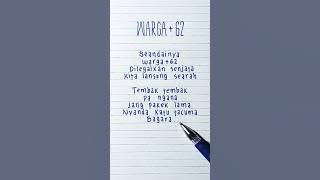 WARGA + 62
Seandainya
warga +62
Dilegalkan senjata
Kita langsung searah
Tembak tembak
pa ngana
jang pakek lama
Nyanda Katu tacuma
Bagara